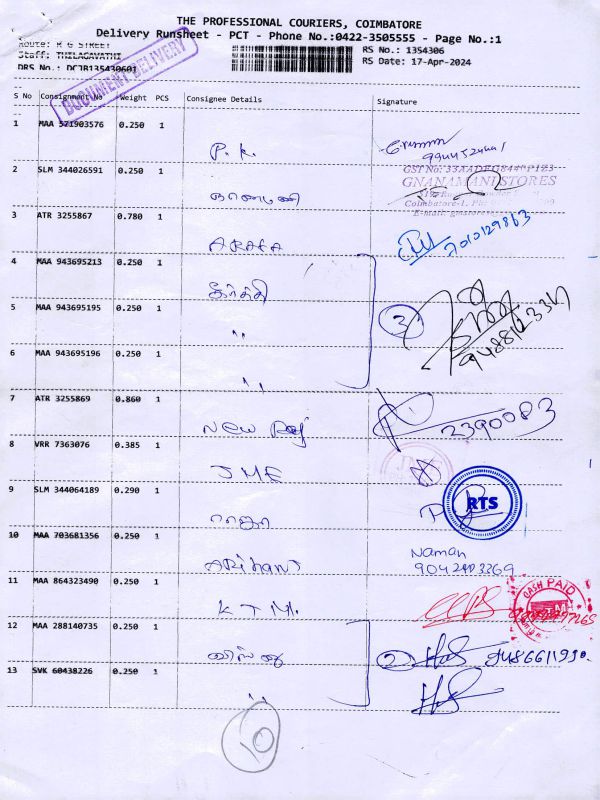 THE PROFESSIONAL COURIERS, COIMBATORE
Delivery Runsheet - PCT - Phone No.:0422-3505555 - Page No.:1
Route: R G STREET
RS No.: 1354306
Staff: THILAGAVATHI
RS Date: 17-Apr-2024
DRS No.: DCJB135430601
DOCUMENT DELIVERY
S No Consignment No Weight PCS Consignee Details Signature
1 MAA 571903576 0.250 1
P. K.
2 SLM 344026591 0.250 1
ஞானமணி
GNANAMANI STORES
3 ATR 3255867 0.780 1
7010129863
4 MAA 943695213 0.250 1
கீர்த்தி
5 MAA 943695195 0.250 1
" 3
6 MAA 943695196 0.250 1
"
7 ATR 3255869 0.860 1
New Raj 2390083
8 VRR 7363076 0.385 1
JME
9 SLM 344064189 0.290 1
ராஜா
RTS
10 MAA 703681356 0.250 1
Arihant
Naman
11 MAA 864323490 0.250 1
KTM.
CASH PAID
12 MAA 288140735 0.250 1
2 9486611930.
13 SVK 60438226 0.250 1
"
10